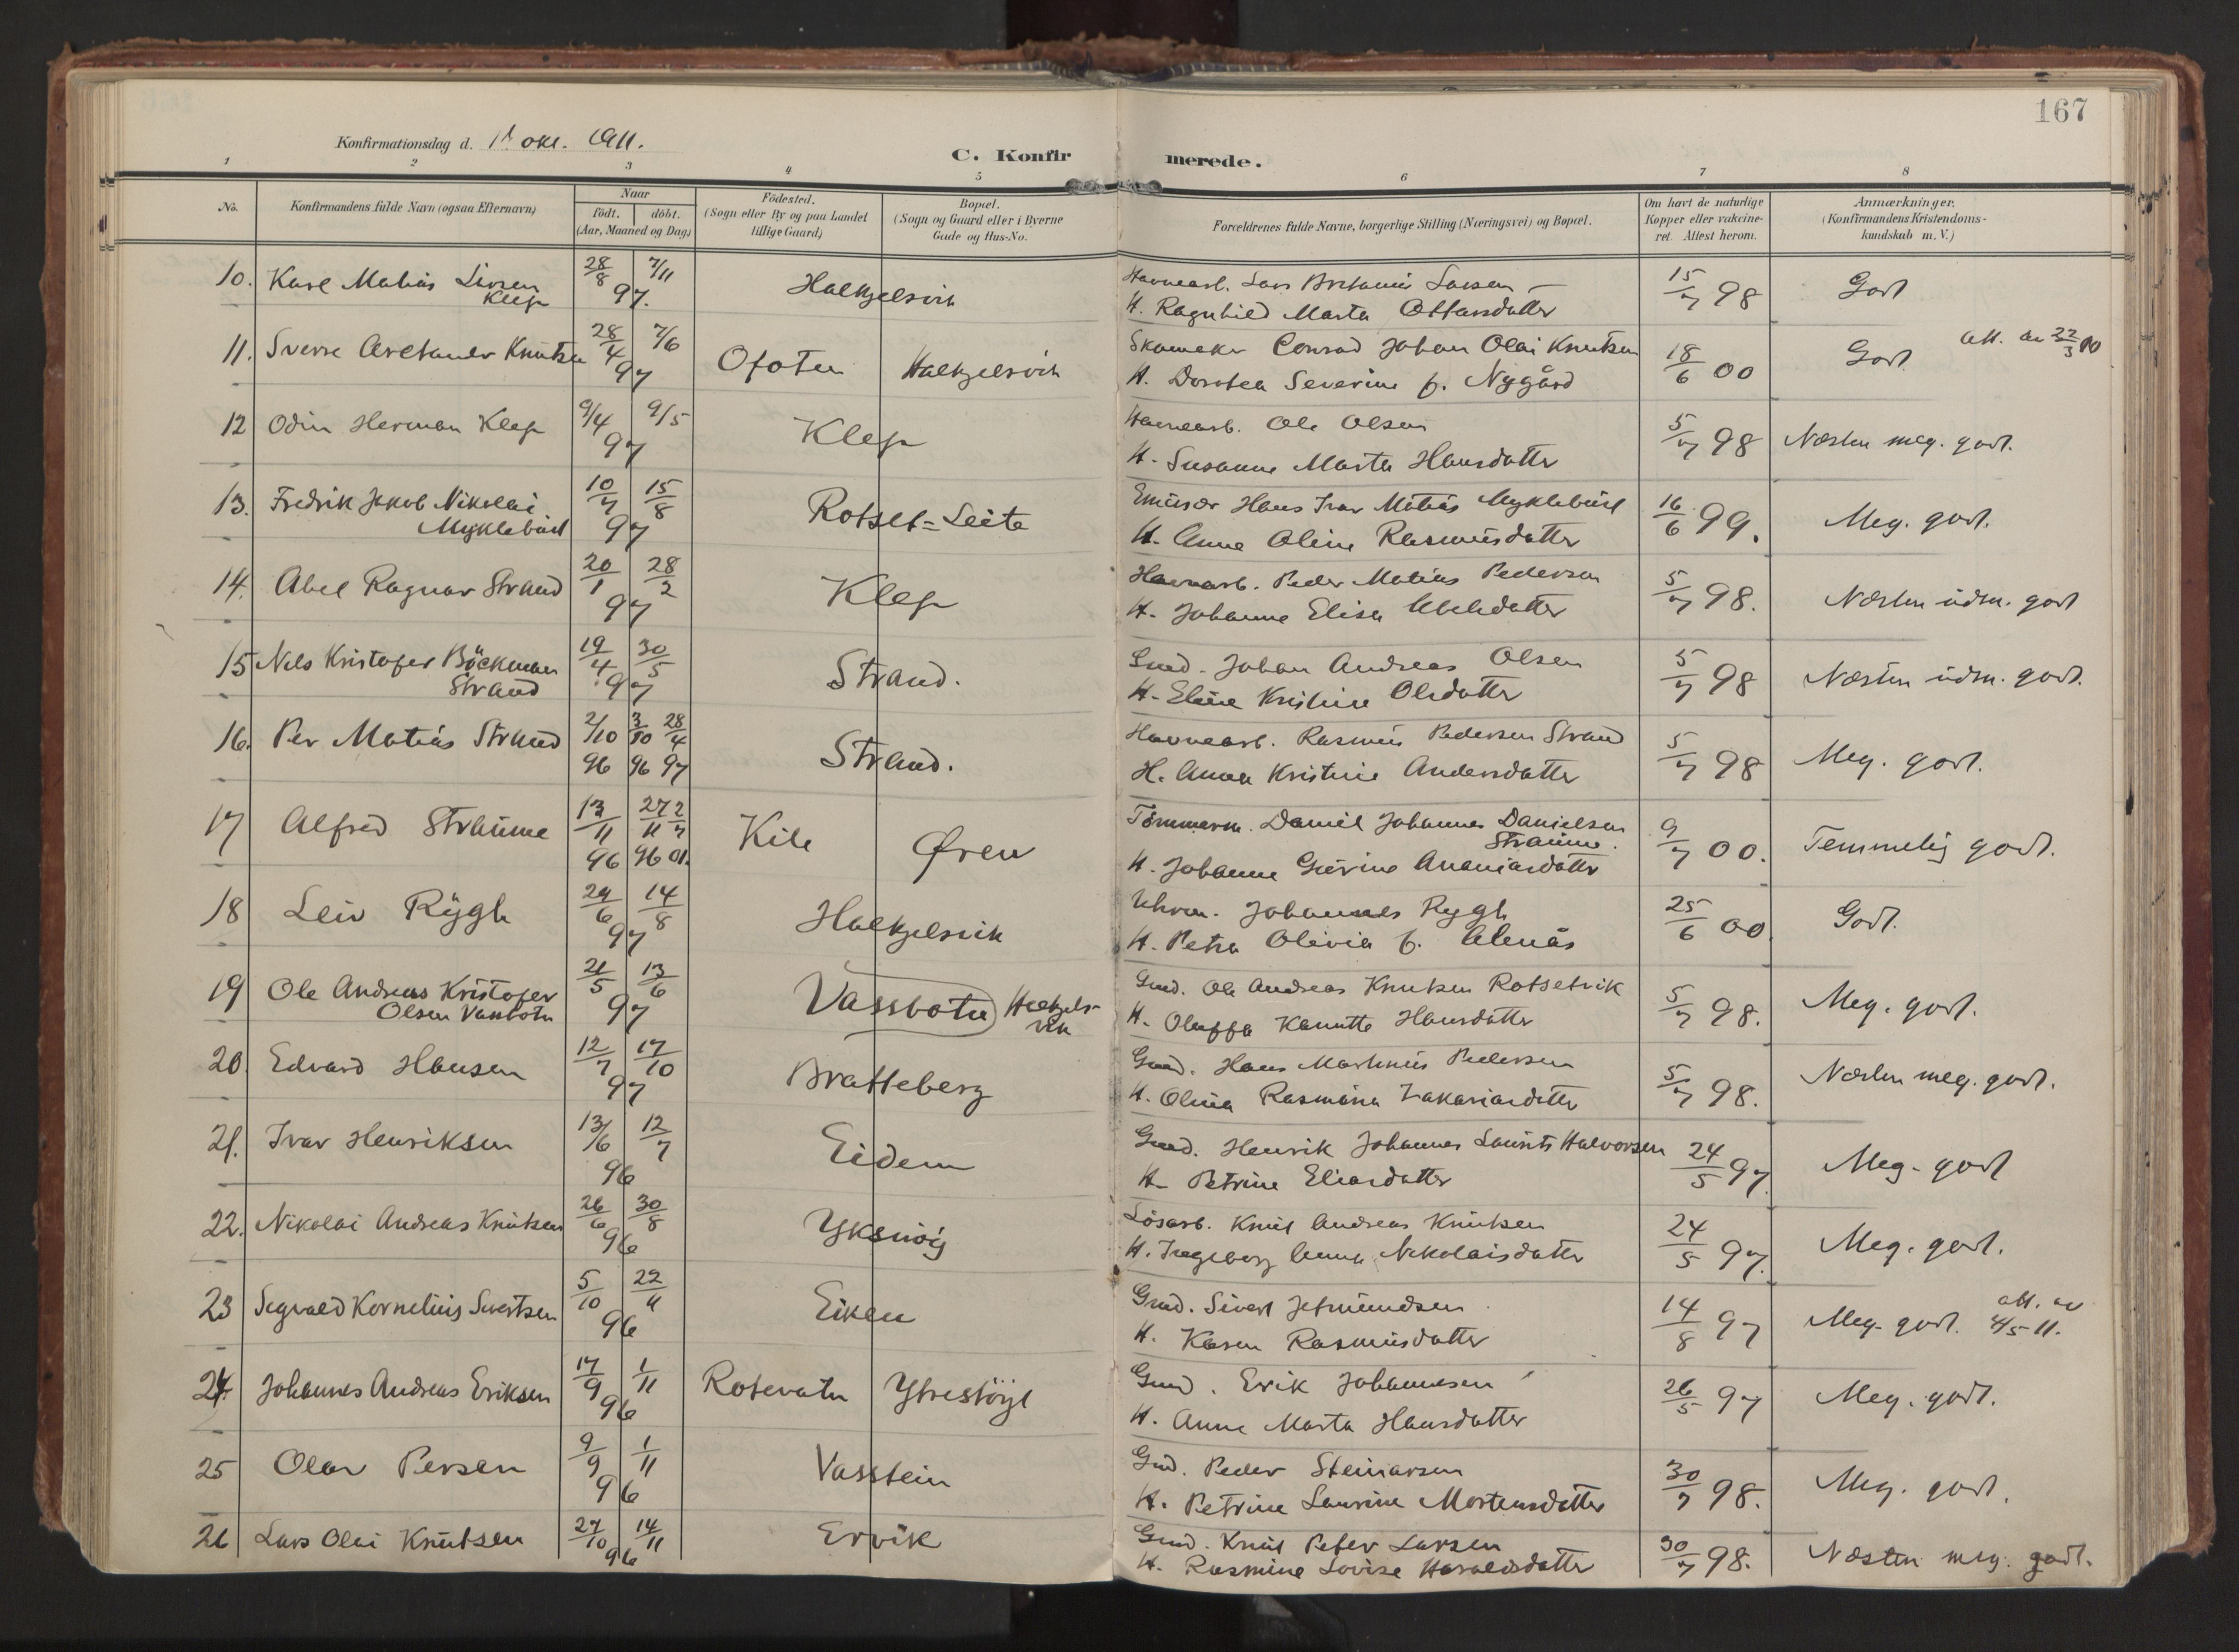 167
Konfirmationsdag d. 1ste okt. 1911.
C. Konfirmerede.
1 2 3 4 5 6 7 8
No.
Konfirmandens fulde Navn (ogsaa Efternavn)
Naar
født. døbt.
(Aar, Maaned og Dag)
Fødested.
(Sogn eller By og paa Landet
tillige Gaard)
Bopæl.
(Sogn og Gaard eller i Byerne
Gade og Hus-No.
Forældrenes fulde Navne, borgerlige Stilling (Næringsvei) og Bopæl.
Om havt de naturlige
Kopper eller vakcine-
ret. Attest herom.
Anmærkninger.
(Konfirmandens Kristendoms-
kundskab m. V.)
10. Karl Matias Larsen 28/8 7/11 Halkjelsvik Havnearb. Lars Larsen 15/7 98 Godt
Klep 97. H. Ragnhild Marta Ottarsdatter
11. Sverre Knutsen 28/4 7/6 Ofoten Halkjelsvik Skomaker Conrad Johan Olai Knutsen 18/6 00 Godt att. av 22/3 10
97 H. Dorotea Severine f. Nygård
12 Odin Herman Klep 9/4 9/5 Klep Havnearb. Ole Olsen 5/7 98 Næsten meg. godt.
97 H. Susanne Marta Hansdatter
13. Fredrik Jakob Nikolai 10/7 15/8 Rotset=Leite Hans Ivar Matias Myklebust 16/6 99. Meg. godt.
Myklebust 97 H. Anne Oline Rasmusdatter
14. Abel Ragnar Strand 20/1 28/2 Klep Havnearb. Peder Matias Pedersen 5/7 98. Næsten udm. godt
97 H. Johanne Elisa
15 Nils Kristofer Bøckman 19/4 30/5 Strand. Grd. Johan Andreas Olsen 5/7 98 Næsten udm. godt.
Strand 97 H. Eline Kristine Olsdatter
16. Per Matias Strand 2/10 3/10 28/4 Strand. Havnearb. Rasmus Pedersen Strand 5/7 98 Meg. godt.
96 96 97 H. Anna Kristine Andersdatter
17 Alfred Straume 13/11 27/11 2/7 Kile Øren Tömmerm. Daniel Johannes Danielsen 9/7 00. Temmelig godt.
Straume.
96 96 01. H. Johanne Gurine Ananiasdatter
18 Leiv Rygh 29/6 14/8 Halkjelsvik Uhrm. Johannes Rygh 25/6 00. Godt.
97 H. Petra Olivia f. Alnäs
19 Ole Andreas Kristofer 21/5 13/6 Vassbotn Halkjels-
vik Grd. Ole Andreas Knutsen Rotsetvik 5/7 98. Meg. godt.
Olsen Vassbotn 97 H. Oluffa Kanutta Hansdatter
20. Edvard Hansen 12/7 17/10 Bratteberg Grd. Hans Martinus Pedersen 5/7 98. Næsten meg. godt.
97 H. Olina Rasmina Zakariasdatter
21. Ivar Henriksen 13/6 12/7 Eidem Grd. Henrik Johannes Laurits Halvorsen 24/5 97. Meg. godt
96 H. Petrine Eliasdatter
22. Nikolai Andreas Knutsen 26/6 30/8 Yksnöy Lösarb. Knut Andreas Knutsen 24/5 97. Meg. godt.
96 H. Ingeborg Anna Nikolaisdatter
23 Sigvald Kornelius Sivertsen 5/10 22/11 Eiken Grd. Sivert Jetmundsen 14/8 97 Meg. godt. att. av 4/5 11.
96 H. Karen Rasmusdatter
24. Johannes Andreas Eriksen 17/9 1/11 Rotevatn Ytrestöyl Grd. Erik Johannesen 26/5 97 Meg. godt.
96 H. Anne Marta Hansdatter
25 Olav Persen 9/9 1/11 Vasstein Grd. Peder Steinarsen 30/7 98. Meg. godt.
96 H. Petrine Laurine Mortensdatter
26 Lars Olai Knutsen 27/10 14/11 Ervik Grd. Knut Peter Larsen 30/7 98. Næsten meg. godt.
96 H. Rasmine Lovise Haraldsdatter